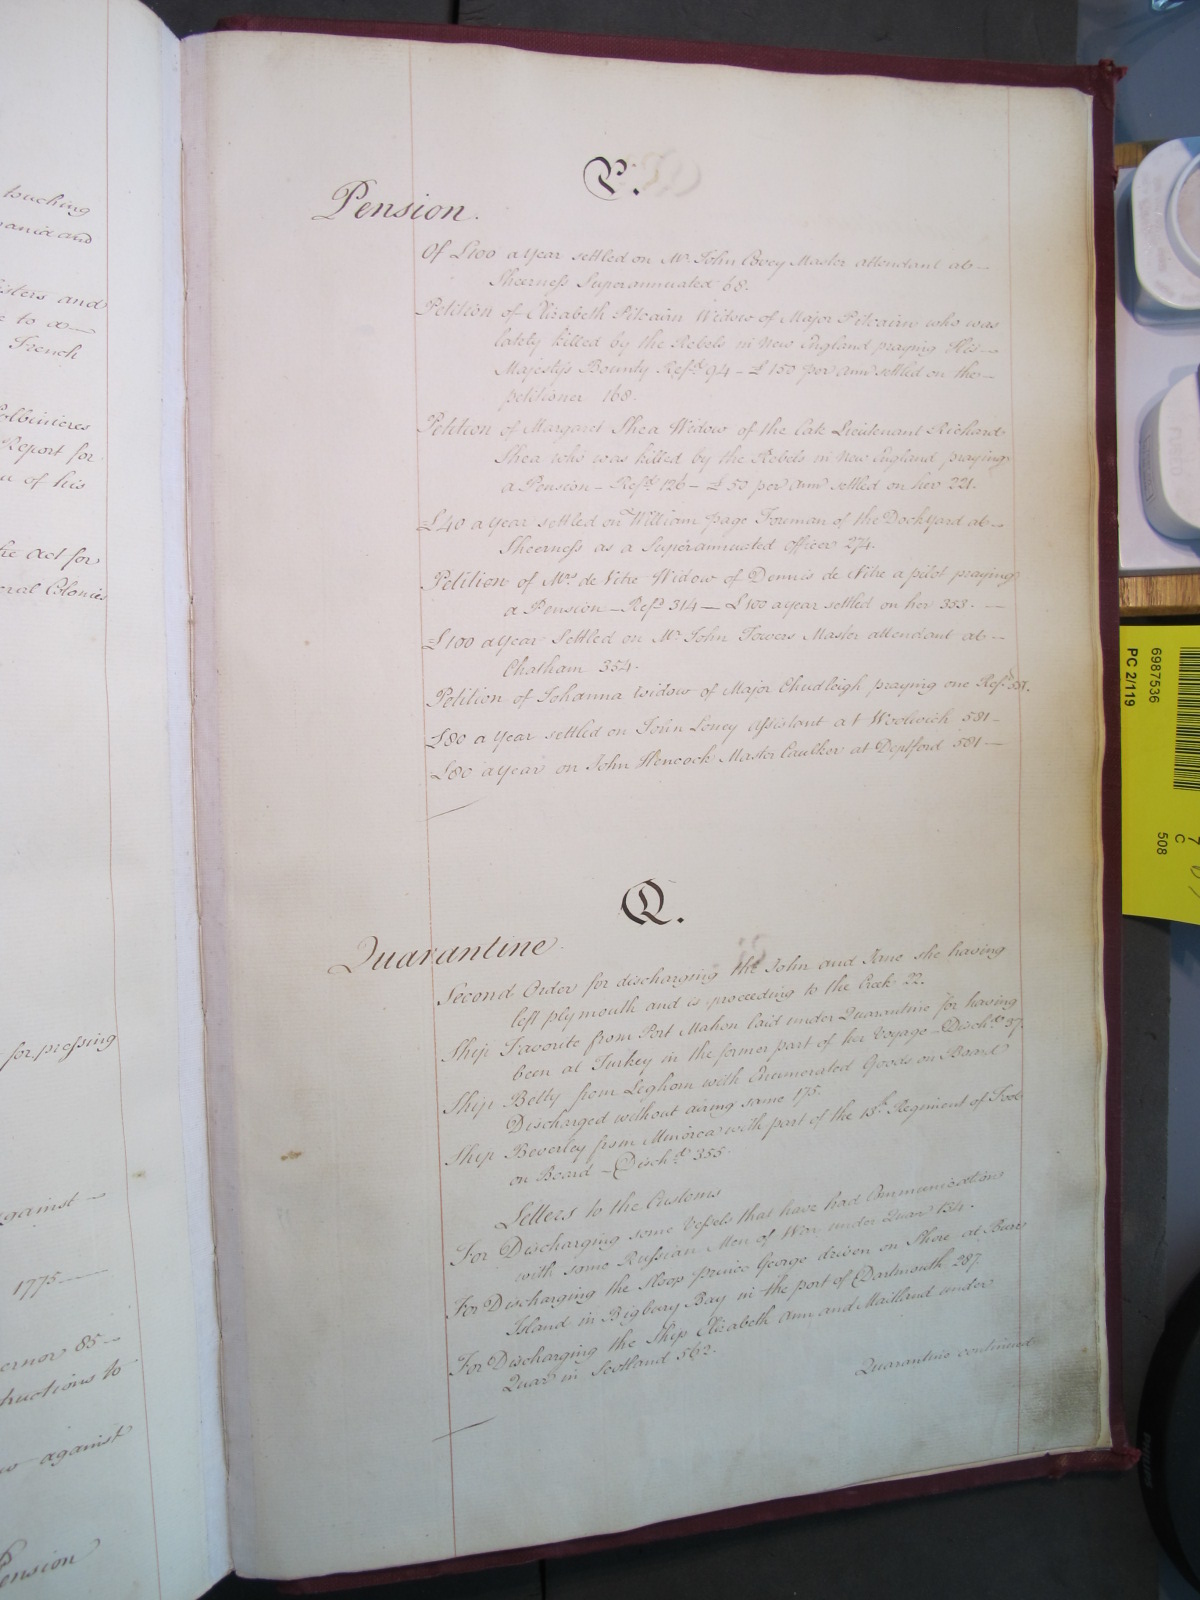 touching
and
isters and
e to a
French
Report for
u of his
he act for
eral Colonies
for pressing
against
1775
ernor 85
tructions to
against
Pension
P.
Pension.
Of £100 a Year settled on Mr. John Covey Master attendant at
Sheerness Superannuated 68.
Petition of Elizabeth Pitcairn Widow of Major Pitcairn who was
lately killed by the Rebels in New England praying His
Majesty's Bounty Refd. 94 - £150 per ann settled on the
petitioner 168.
Petition of Margaret Shea Widow of the late Lieutenant Richard
Shea who was killed by the Rebels in New England praying
a Pension - Refd. 126 - £50 per ann settled on her 221.
£40 a Year settled on William page Foreman of the Dockyard at
Sheerness as a Superannuated Officer 274.
Petition of Mrs. de Vitre Widow of Dennis de Vitre a pilot praying
a Pension - Refd. 314 - £100 a year settled on her 353.
£100 a Year Settled on Mr. John Towers Master attendant at
Chatham 354.
Petition of Johanna widow of Major Chudleigh praying one Refd.
£80 a Year settled on John Loney assistant at Woolwich 581
£80 a Year on John Hencock Master Caulker at Deptford 581
Q.
Quarantine.
Second Order for discharging the John and Jane she having
left plymouth and is proceeding to the Creek 22.
Ship Favorite from Port Mahon laid under Quarantine for having
been at Turkey in the former part of her Voyage - Dischd. 37.
Ship Betty from Leghorn with Enumerated Goods on Board
Discharged without airing same 175.
Ship Beverley from Minorca with part of the 13th Regiment of Foot
on Board - Dischd. 355.
Letters to the Customs
For Discharging some Vessels that have had Communication
with some Russian Men of War under Quar 134.
For Discharging the Sloop prince George driven on Shore at Burr
Island in Bigbury Bay in the port of Dartmouth 287.
For Discharging the Ship Elizabeth Ann and Maitland under
Quar in Scotland 562.
Quarantine continued
6987536
PC 2/119
C
508